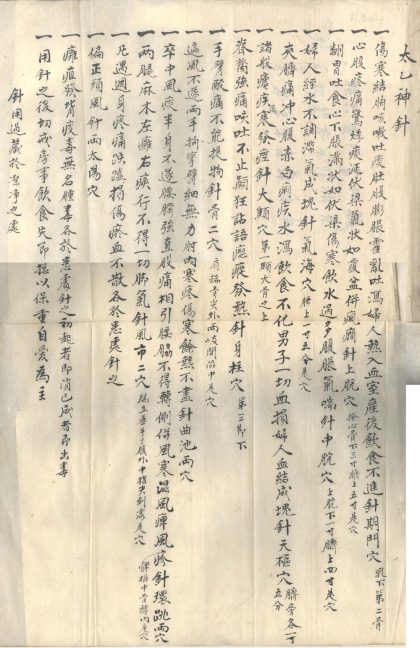 太乙神針
一傷寒結胸咳嗽吐痰肚腹膨脹霍亂吐瀉婦人熱入血室產後飲食不進針期門穴 乳下第二骨
一心腹疼痛驚悸痰涎伏梁氣狀如覆盆併瘋癇針上脘穴 按心骨下三寸臍上五寸是穴
一翻胃吐食心下脹滿狀如伏梁傷寒飲水過多腹脹氣喘針中脘穴 上脘下一寸臍上四寸是穴
一婦人經水不調滯氣成塊針氣海穴 臍下一寸五分是穴
一夾臍痛沖心腹赤白痢疾水瀉飲食不化男子一切血損婦人血結成塊針天樞穴 臍旁各一寸五分
一諸般瘧疾寒發痙針大顀穴 第一顀大骨之上
一脊膂強痛嘔吐不止癲狂詀語瘛瘲發熱針身柱穴 第三節下
一手臂酸痛不能提物針肩二穴 肩端骨尖外兩歧間陷中是穴
一偏風不遂兩手拘攣臂細無力肘內寒疼傷寒餘熱不盡針曲池兩穴
一卒中風痰半身不遂腰胯強直股痛相引腰脇不得轉側併風寒濕風痺風疹針環跳兩穴 髀樞中骨縫內是穴
一兩腿麻木左癱右瘓行不得一切腳氣針風市二穴 端立垂手于腿外中指尖到處是穴
一凡遇週身疼痛跌蹼損傷瘀血不散各於患處針之
一偏正頭風針兩太陽穴
一癰疽發背疫毒無名腫毒各於患處針之初起者即消已成者即出毒
一用針之後切戒房事飲食失節摳以保重自愛為主
針用過藏於潔凈之處